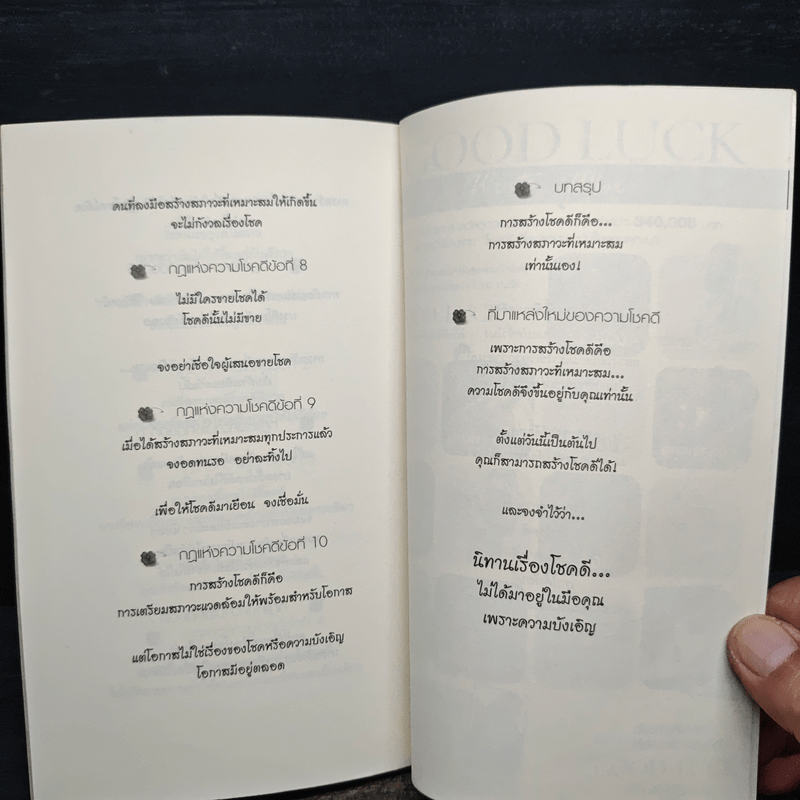 คนที่ลงมือสร้างสภาวะที่เหมาะสมให้เกิดขึ้น
จะไม่กังวลเรื่องโชค
กฎแห่งความโชคดีข้อที่ 8
ไม่มีใครขายโชคได้
โชคดีนั้นไม่มีขาย
จงอย่าเชื่อใจผู้เสนอขายโชค
กฎแห่งความโชคดีข้อที่ 9
เมื่อได้สร้างสภาวะที่เหมาะสมทุกประการแล้ว
จงอดทนรอ อย่าละทิ้งไป
เพื่อให้โชคดีมาเยือน จงเชื่อมั่น
กฎแห่งความโชคดีข้อที่ 10
การสร้างโชคดีก็คือ
การเตรียมสภาวะแวดล้อมให้พร้อมสำหรับโอกาส
แต่โอกาสไม่ใช่เรื่องของโชคหรือความบังเอิญ
โอกาสมีอยู่ตลอด
GOOD LUCK
บทสรุป
การสร้างโชคดีก็คือ...
การสร้างสภาวะที่เหมาะสม
เท่านั้นเอง!
ที่มาแหล่งใหม่ของความโชคดี
เพราะการสร้างโชคดีคือ
การสร้างสภาวะที่เหมาะสม...
ความโชคดีจึงขึ้นอยู่กับคุณเท่านั้น
ตั้งแต่วันนี้เป็นต้นไป
คุณก็สามารถสร้างโชคดีได้!
และจงจำไว้ว่า...
นิทานเรื่องโชคดี...
ไม่ได้มาอยู่ในมือคุณ
เพราะความบังเอิญ